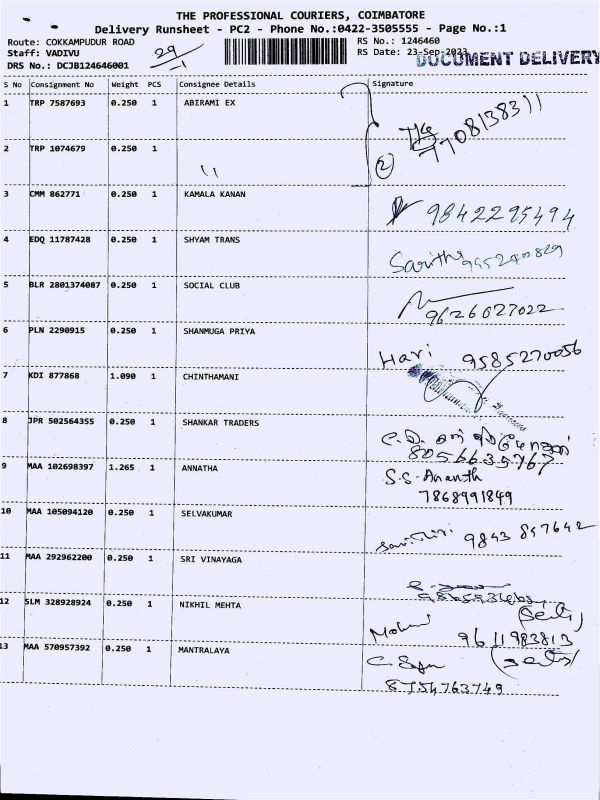 THE PROFESSIONAL COURIERS, COIMBATORE
Delivery Runsheet - PC2 - Phone No.:0422-3505555 - Page No.:1
Route: COKKAMPUDUR ROAD
Staff: VADIVU
DRS No.: DCJB124646001
29/-1
RS No.: 1246460
RS Date: 23-Sep-2023
DOCUMENT DELIVERY
S No Consignment No Weight PCS Consignee Details Signature
1 TRP 7587693 0.250 1 ABIRAMI EX 7708138311
2 TRP 1074679 0.250 1 " (2)
3 CMM 862771 0.250 1 KAMALA KANAN 9842295494
4 EDQ 11787428 0.250 1 SHYAM TRANS Saritha
5 BLR 2801374087 0.250 1 SOCIAL CLUB 9626027022
6 PLN 2290915 0.250 1 SHANMUGA PRIYA Hari 9585270056
7 KDI 877868 1.090 1 CHINTHAMANI
8 JPR 502564355 0.250 1 SHANKAR TRADERS 8056635767
9 MAA 102698397 1.265 1 ANNATHA S.S-Ananth
7868991849
10 MAA 105094120 0.250 1 SELVAKUMAR 9843 847642
11 MAA 292962200 0.250 1 SRI VINAYAGA
12 SLM 328928924 0.250 1 NIKHIL MEHTA 9611983813
13 MAA 570957392 0.250 1 MANTRALAYA
8754763749